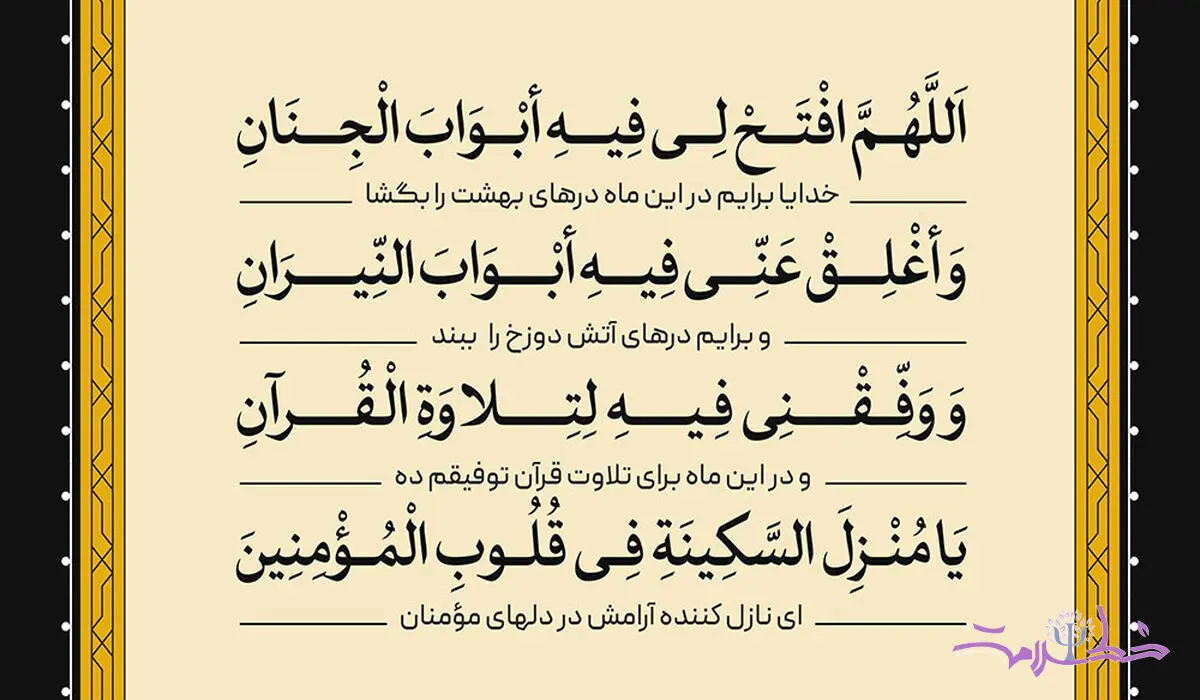 اَللَّهُمَّ افْتَحْ لِی فِیهِ أبْوَابَ الْجِنَانِ
خدایا برایم در این ماه درهای بهشت را بگشا
وَ أغْلِقْ عَنِّی فِیهِ أبْوَابَ النِّیرَانِ
و برایم درهای آتش دوزخ را ببند
وَ وَفِّقْنِی فِیهِ لِتِلاوَةِ الْقُرآنِ
و در این ماه برای تلاوت قرآن توفیقم ده
یَا مُنْزِلَ السَّکِینَةِ فِی قُلُوبِ الْمُؤْمِنِینَ
ای نازل کننده آرامش در دلهای مؤمنان
خط سلامت